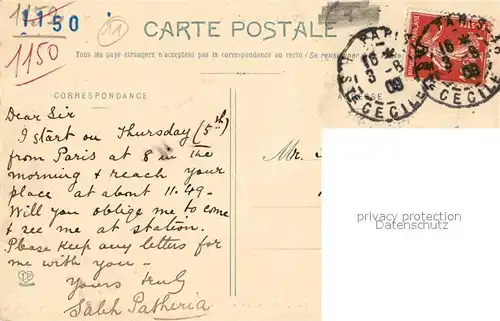 1150
1150
1150
11
CARTE POSTALE
Tous les pays étrangers n'acceptent pas la correspondance au recto (Se renseigner
CORRESPONDANCE
PARIS
16 *
3 -8
09
CECIL
PARIS
16 *
3 -8
09
CECIL
Dear Sir
I start on Thursday (5th)
from Paris at 8 in the
morning & reach your
place at about 11.49 -
Will you oblige me to come
& see me at station.
Please keep any letters for
me with you -
Yours truly
Saleh Patheria
Mr.
privacy protection
Datenschutz